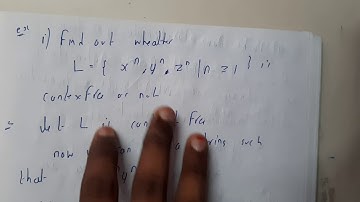 ex 1) Find out wheather
L = { xⁿ, yⁿ, zⁿ | n ≥ 1 } is
context free or not
Let L is con free
now string such
that yⁿ